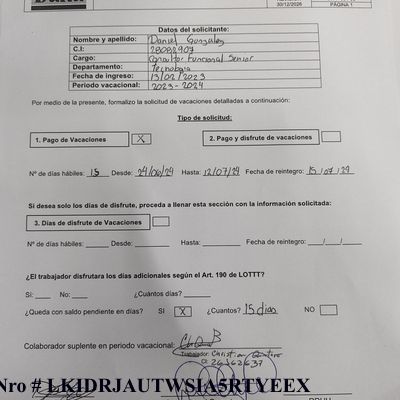 30/12/2026
PÁGINA 1
Datos del solicitante:
Nombre y apellido: Daniel Gonzalez
C.I: 28082907
Cargo: Consultor Funcional Senior
Departamento: Tecnología
Fecha de ingreso: 13/02/2023
Periodo vacacional: 2023-2024
Por medio de la presente, formalizo la solicitud de vacaciones detalladas a continuación:
Tipo de solicitud:
1. Pago de Vacaciones X 2. Pago y disfrute de vacaciones
Nº de días hábiles: 15 Desde: 24/06/24 Hasta: 12/07/24 Fecha de reintegro: 15/07/24
Si desea solo los días de disfrute, proceda a llenar esta sección con la información solicitada:
3. Días de disfrute de Vacaciones
Nº de días hábiles: Desde: Hasta: Fecha de reintegro: / /
¿El trabajador disfrutara los días adicionales según el Art. 190 de LOTTT?
Sí: No: ¿Cuántos días?
¿Queda con saldo pendiente en días? SI X ¿Cuantos? 15 días NO
Colaborador suplente en periodo vacacional:
Trabajador: Christian
Nro # LKIDRJAUTWSIA5RTYEEX